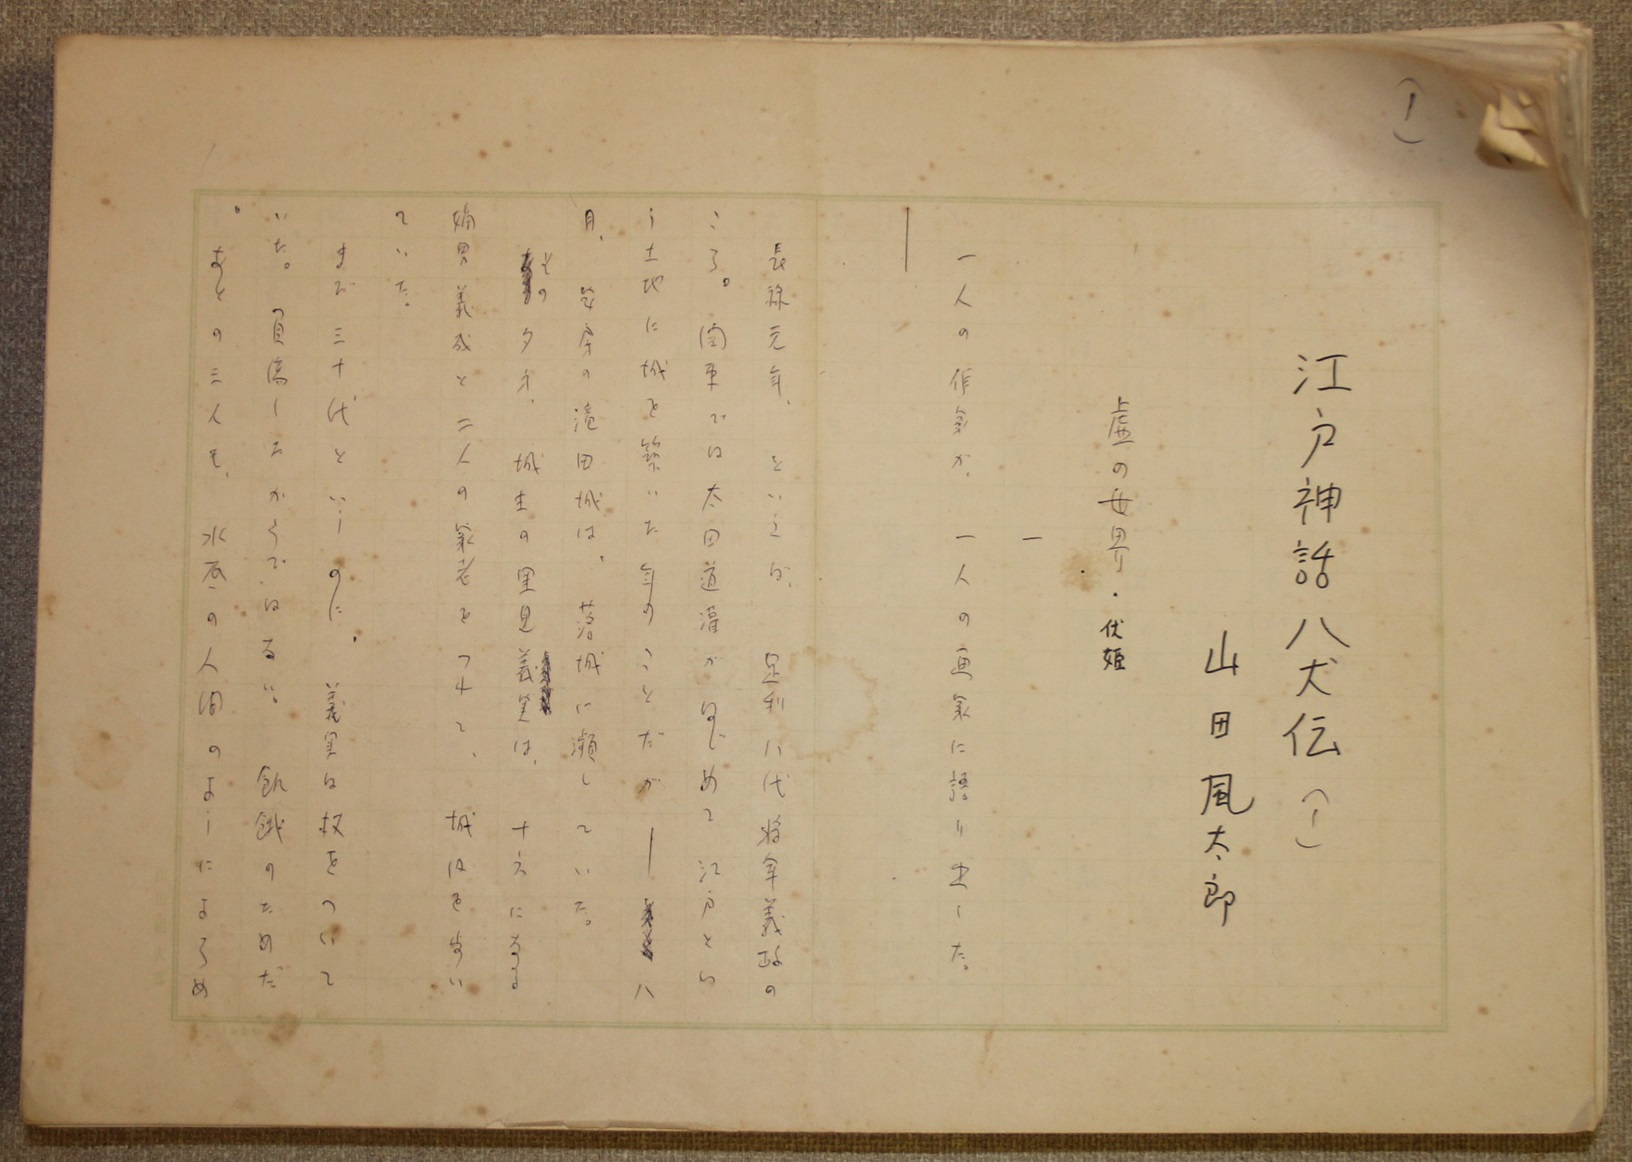 (1)
江戸神話八犬伝 (1)
山田風太郎
虚の世界・伏姫
一
一人の作家が、一人の画家に語り出した。
――
長禄元年、というと、足利八代将軍義政の
ころ。関東では太田道灌がはじめて江戸とい
う土地に城を築いた年のことだが――八
月、安房の滝田城は、落城に瀕していた。
その夕方、城主の里見義実は、十六になる
嫡男義成と二人の家老をつれて、城内を歩い
ていた。
まだ三十代というのに、義実は杖をついて
いた。負傷したからではない。飢餓のためだ
。あとの三人も、水底の人間のようによろめ